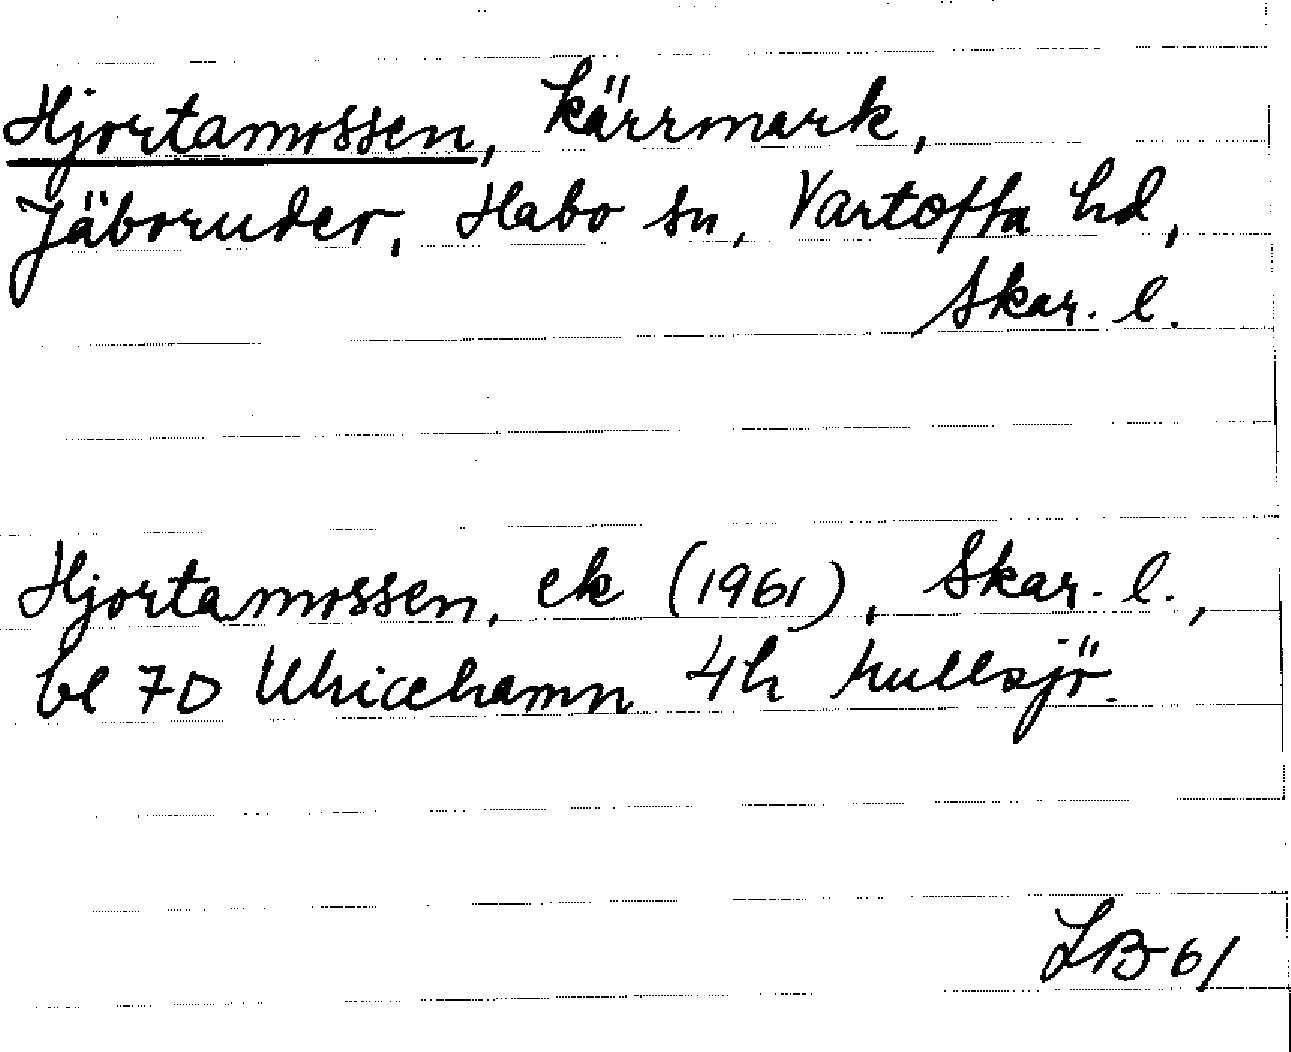 Hjortamossen, kärrmark,
Jäboruder, Habo sn, Vartofta hd,
Skar. l.
Hjortamossen, ek (1961), Skar. l.,
bl 70 Ulricehamn 4h Mullsjö.
LB 61